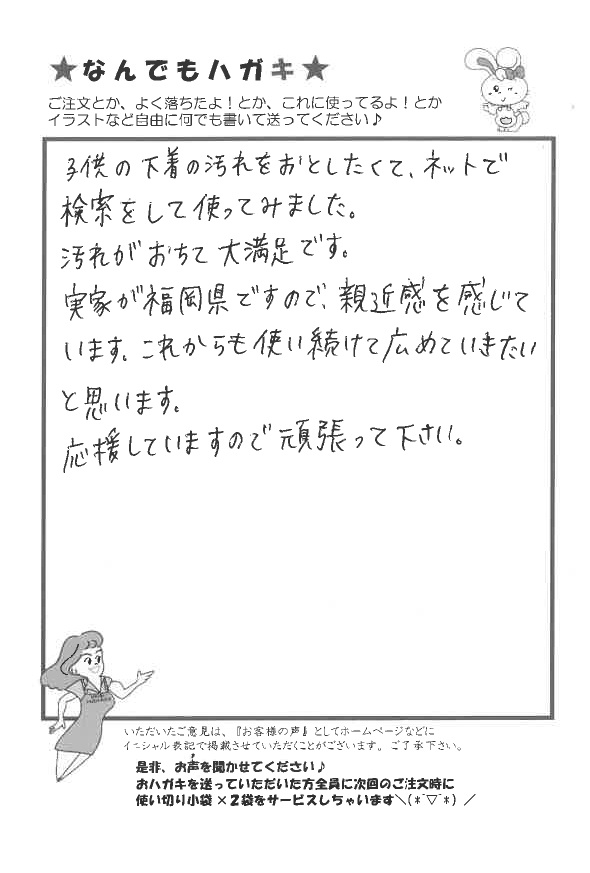 ★なんでもハガキ★
ご注文とか、よく落ちたよ！とか、これに使ってるよ！とか
イラストなど自由に何でも書いて送ってください♪
子供の下着の汚れをおとしたくて、ネットで
検索をして使ってみました。
汚れがおちて大満足です。
実家が福岡県ですので、親近感を感じて
います。これからも使い続けて広めていきたい
と思います。
応援していますので頑張って下さい。
いただいたご意見は、『お客様の声』としてホームページなどに
イニシャル表記で掲載させていただくことがございます。ご了承下さい。
是非、お声を聞かせてください♪
おハガキを送っていただいた方全員に次回のご注文時に
使い切り小袋×2袋をサービスしちゃいます＼(*´▽`*)／